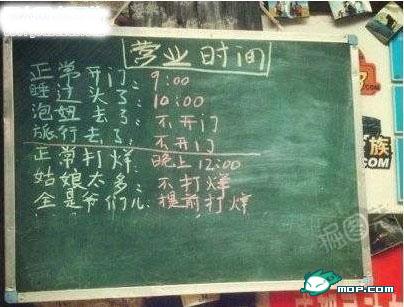 营业时间
正常开门：9:00
睡过头了：10:00
泡妞去了：不开门
旅行去了：不开门
正常打烊：晚上12:00
姑娘太多：不打烊
全是爷们儿：提前打烊
族
.COM
掘图
MOP.COM